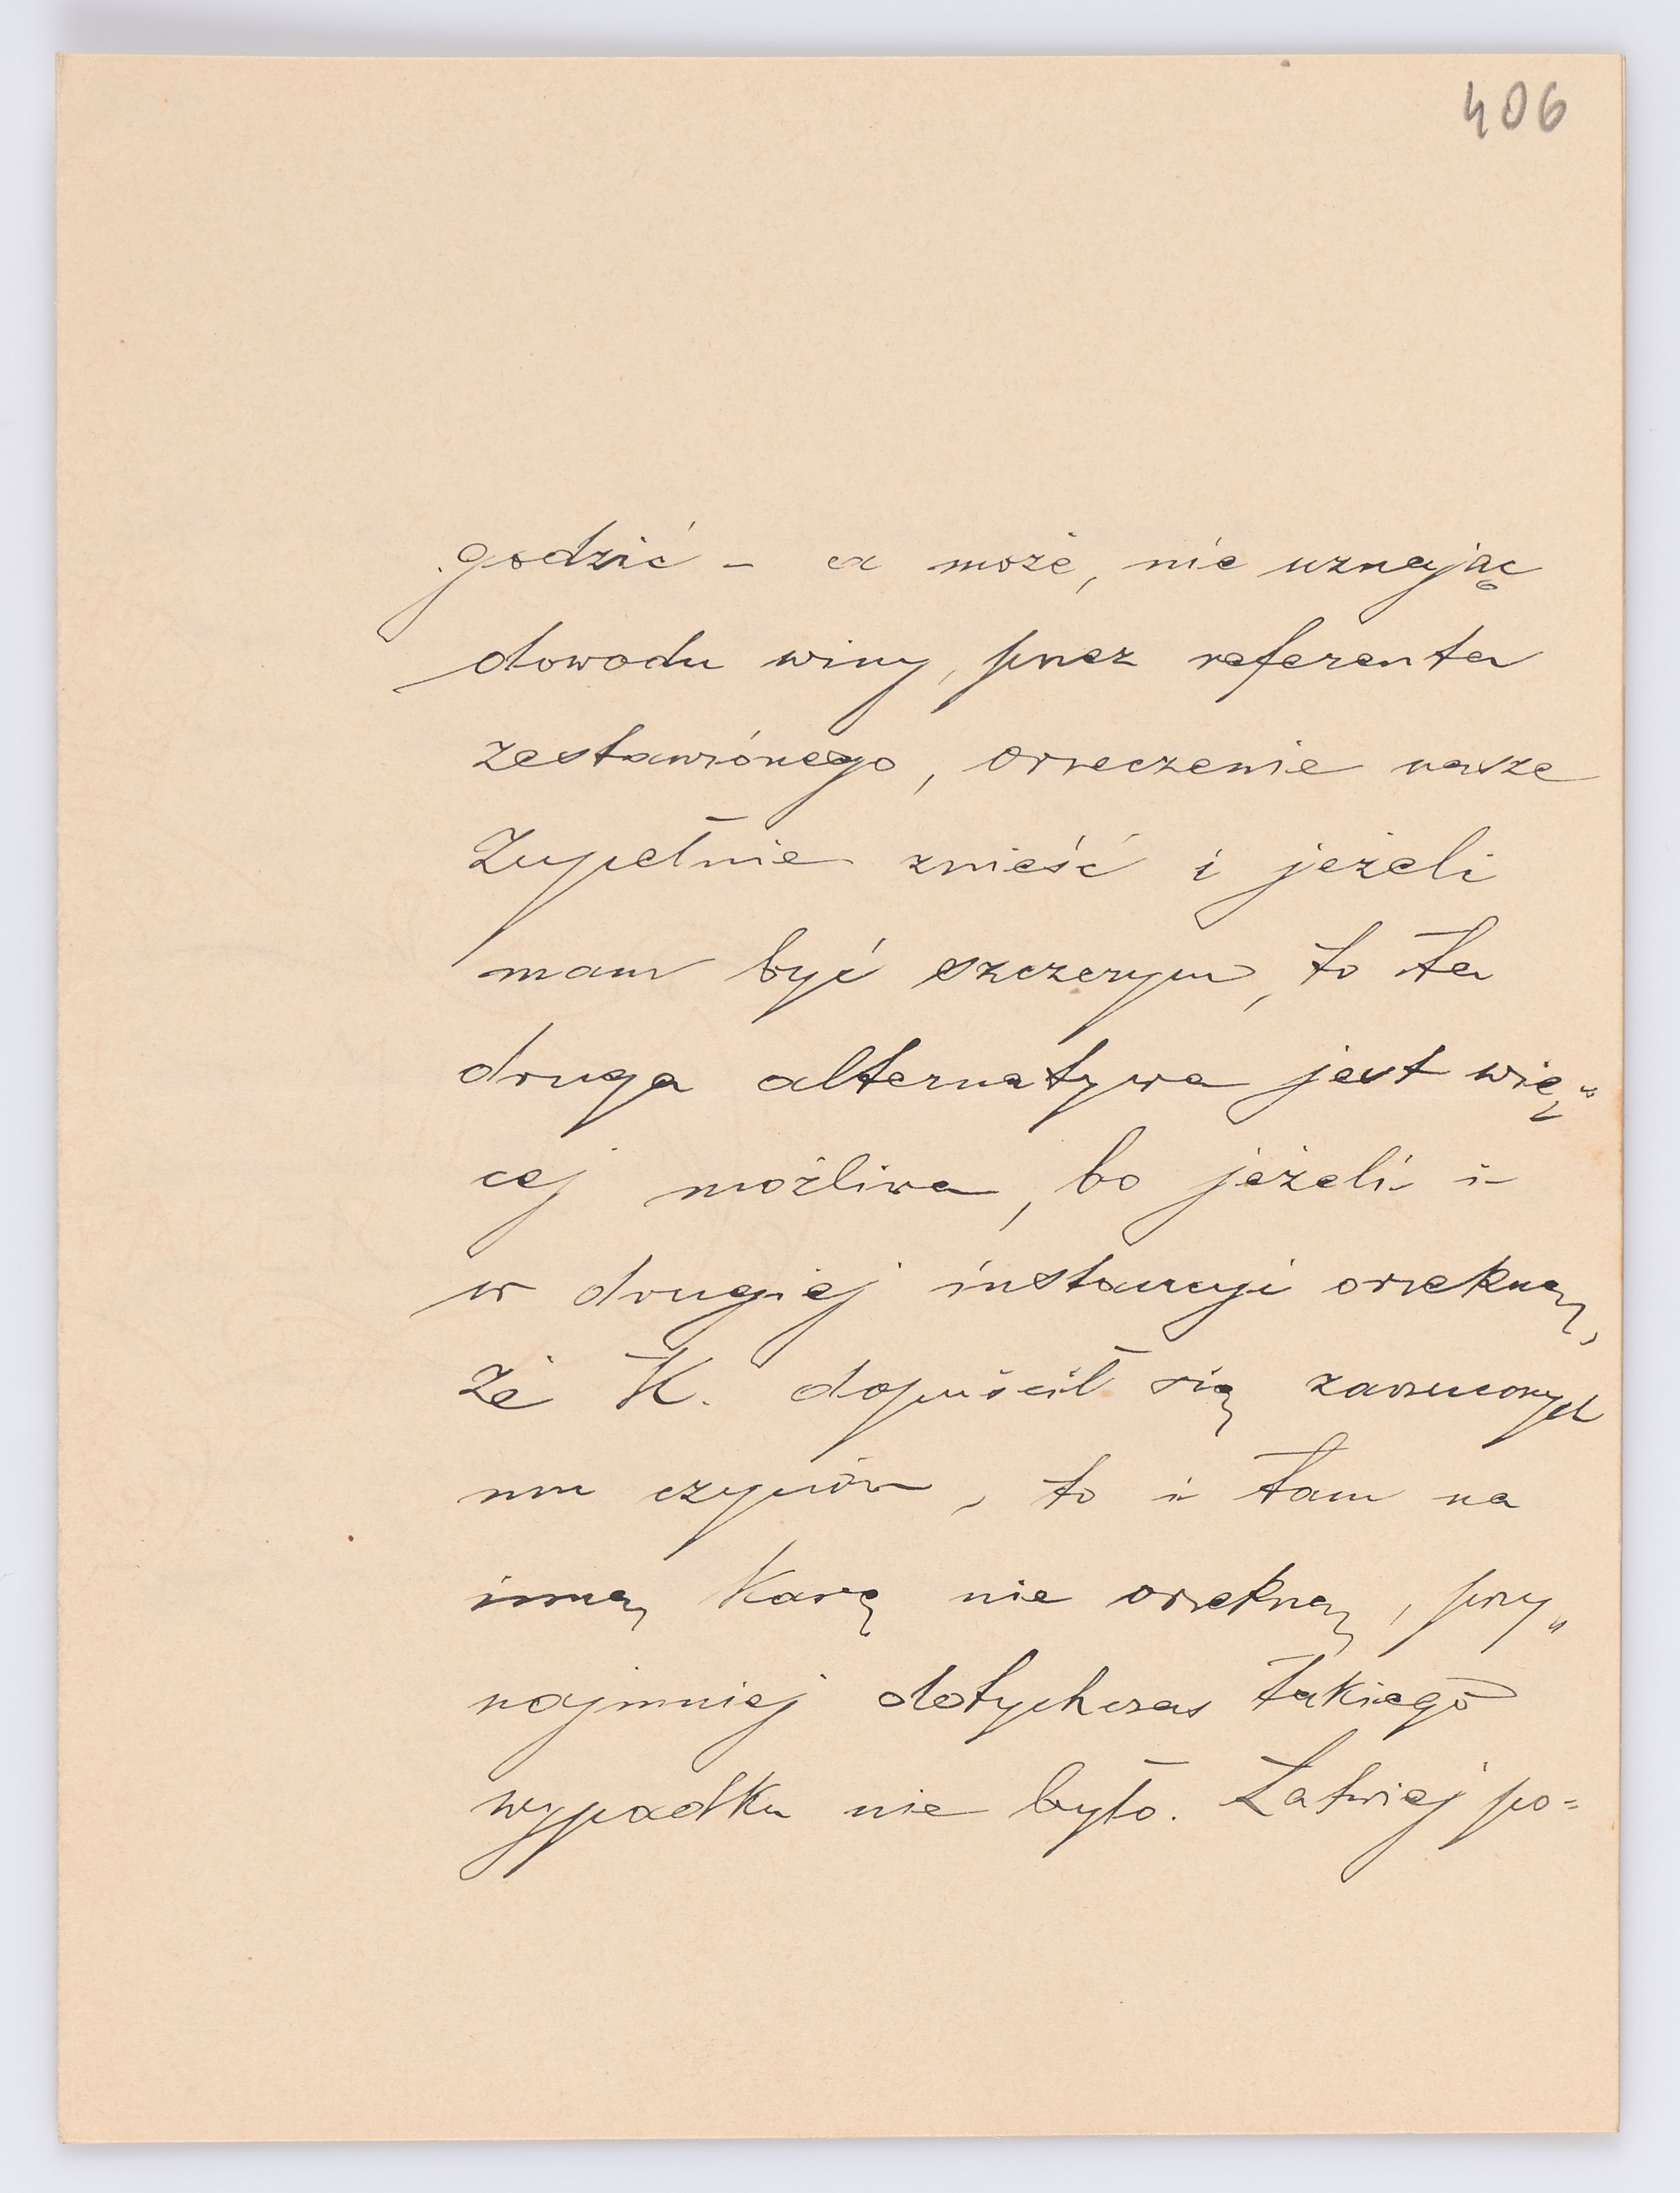 406
godzić – a może, nie uznając
dowodu winy, przez referenta
zestawionego, orzeczenie nasze
zupełnie znieść i jeżeli
mam być szczerym, to ta
druga alternatywa jest wię„
cej możliwa, bo jeżeli i
w drugiej instancyi orzekną,
że K. dopuścił się zarzuconych
mu czynów, to i tam na
inną karę nie orzekną, przy„
najmniej dotychczas takiego
wypadku nie było. Łatwiej po=